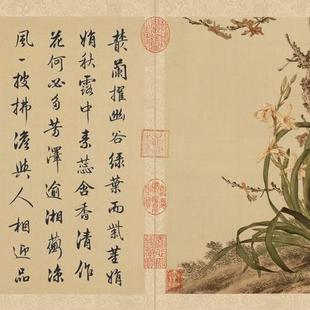 叢蘭擢幽谷綠葉而紫莖娟
娟秋露中素蕊含香清作
花何必多芳澤逾湘蘅涼
風一披拂澹與人相迎品